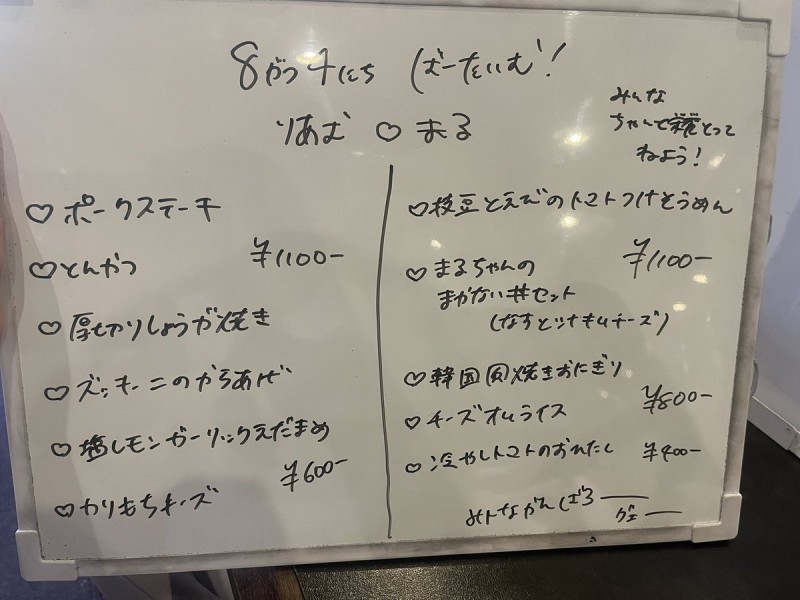 8がつ4にち ばーたいむ!
りあむ ♡ まる
みんな
ちゃんと睡眠とって
ねよう!
♡ポークステーキ
♡とんかつ ¥1100-
♡厚切りしょうが焼き
♡ズッキーニのからあげ
♡塩レモンガーリックえだまめ
¥600-
♡かりもちチーズ
♡枝豆とえびのトマトつけそうめん
¥1100-
♡まるちゃんの
まかない丼セット
(なすとツナキムチーズ)
♡韓国風焼きおにぎり
¥800-
♡チーズオムライス
♡冷やしトマトのおひたし ¥400-
みんながんばろ——
グェ—